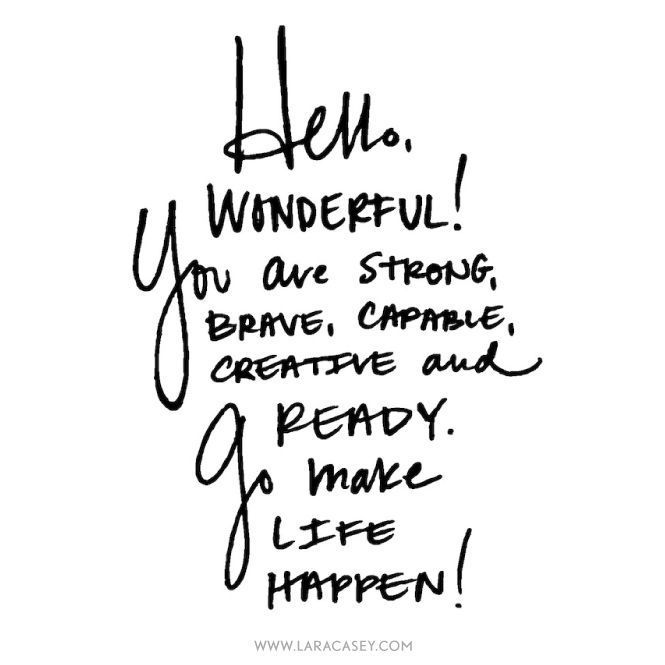 Hello,
WONDERFUL!
You are STRONG,
BRAVE, CAPABLE,
CREATIVE and
READY.
Go make
LIFE
HAPPEN!
WWW.LARACASEY.COM